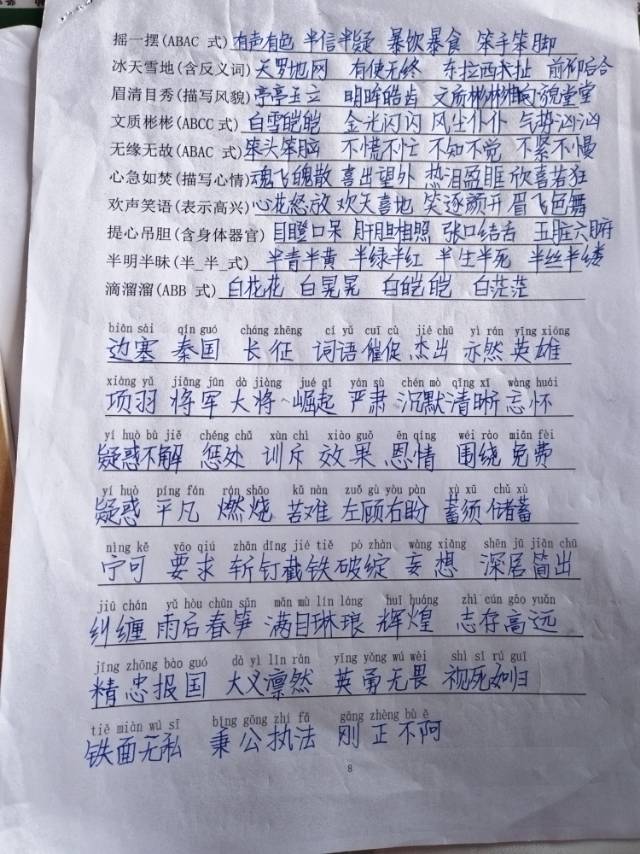 摇一摆(ABAC 式) 有声有色 半信半疑 暴饮暴食 笨手笨脚
冰天雪地(含反义词) 天罗地网 有使无终 东拉西扯 前仰后合
眉清目秀(描写风貌) 亭亭玉立 明眸皓齿 文质彬彬 相貌堂堂
文质彬彬(ABCC 式) 白雪皑皑 金光闪闪 风尘仆仆 气势汹汹
无缘无故(ABAC 式) 笨头笨脑 不慌不忙 不知不觉 不紧不慢
心急如焚(描写心情) 魂飞魄散 喜出望外 热泪盈眶 欣喜若狂
欢声笑语(表示高兴) 心花怒放 欢天喜地 笑逐颜开 眉飞色舞
提心吊胆(含身体器官) 目瞪口呆 肝胆相照 张口结舌 五脏六腑
半明半昧(半_半_式) 半青半黄 半绿半红 半生半死 半丝半缕
滴溜溜(ABB 式) 白花花 白晃晃 白皑皑 白茫茫
biān sài qín guó cháng zhēng cí yǔ cuī cù jié chū yì rán yīng xióng
边塞 秦国 长征 词语 催促 杰出 亦然 英雄
xiàng yǔ jiāng jūn dà jiàng jué qǐ yán sù chén mò qīng xī wàng huái
项羽 将军 大将 崛起 严肃 沉默 清晰 忘怀
yí huò bù jiě chéng chǔ xùn chì xiào guǒ ēn qíng wéi rào miǎn fèi
疑惑不解 惩处 训斥 效果 恩情 围绕 免费
yí huò píng fán rán shāo kǔ nàn zuǒ gù yòu pàn xù xū chǔ xù
疑惑 平凡 燃烧 苦难 左顾右盼 蓄须 储蓄
nìng kě yāo qiú zhǎn dīng jié tiě pò zhàn wàng xiǎng shēn jū jiǎn chū
宁可 要求 斩钉截铁 破绽 妄想 深居简出
jiū chán yǔ hòu chūn sǔn mǎn mù lín láng huī huáng zhì cún gāo yuǎn
纠缠 雨后春笋 满目琳琅 辉煌 志存高远
jīng zhōng bào guó dà yì lǐn rán yīng yǒng wú wèi shì sǐ rú guī
精忠报国 大义凛然 英勇无畏 视死如归
tiě miàn wú sī bǐng gōng zhí fǎ gāng zhèng bù ē
铁面无私 秉公执法 刚正不阿
8